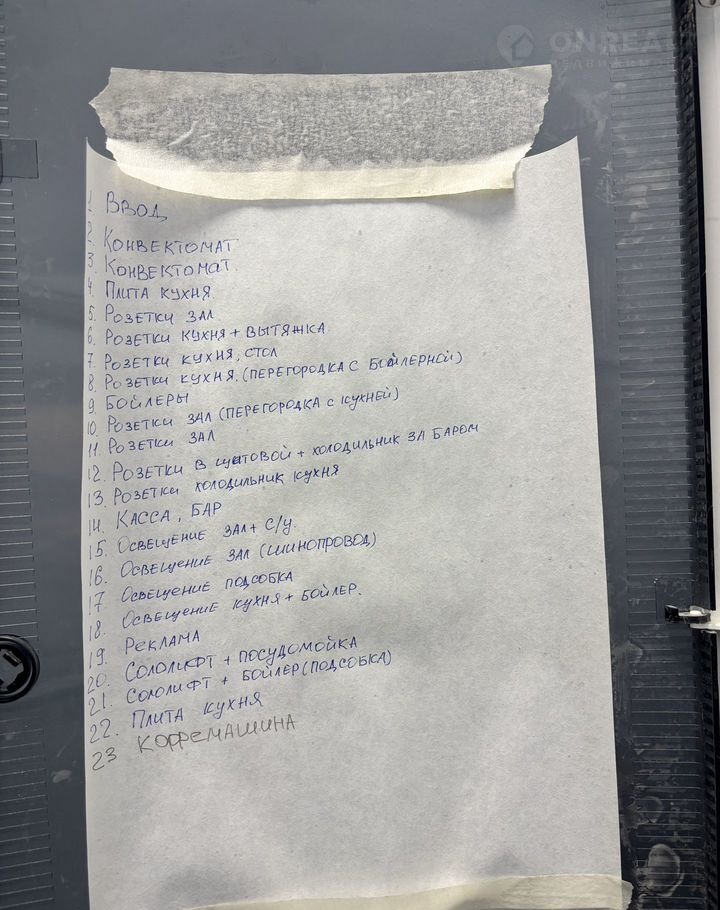 ONREAL
НЕДВИЖИМОСТЬ
1. ВВОД
2. КОНВЕКТОМАТ
3. КОНВЕКТОМАТ.
4. ПЛИТА КУХНЯ
5. РОЗЕТКИ ЗАЛ
6. РОЗЕТКИ КУХНЯ + ВЫТЯЖКА
7. РОЗЕТКИ КУХНЯ, СТОЛ
8. РОЗЕТКИ КУХНЯ. (ПЕРЕГОРОДКА С БОЙЛЕРНОЙ)
9. БОЙЛЕРЫ
10. РОЗЕТКИ ЗАЛ (ПЕРЕГОРОДКА С КУХНЕЙ)
11. РОЗЕТКИ ЗАЛ
12. РОЗЕТКИ В ЩИТОВОЙ + ХОЛОДИЛЬНИК ЗА БАРОМ
13. РОЗЕТКИ ХОЛОДИЛЬНИК КУХНЯ
14. КАССА, БАР
15. ОСВЕЩЕНИЕ ЗАЛ + С/У.
16. ОСВЕЩЕНИЕ ЗАЛ (ШИНОПРОВОД)
17 ОСВЕЩЕНИЕ ПОДСОБКА
18. ОСВЕЩЕНИЕ КУХНЯ + БОЙЛЕР.
19. РЕКЛАМА
20. СОЛОЛИФТ + ПОСУДОМОЙКА
21. СОЛОЛИФТ + БОЙЛЕР (ПОДСОБКА)
22. ПЛИТА КУХНЯ
23 КОФФЕМАШИНА